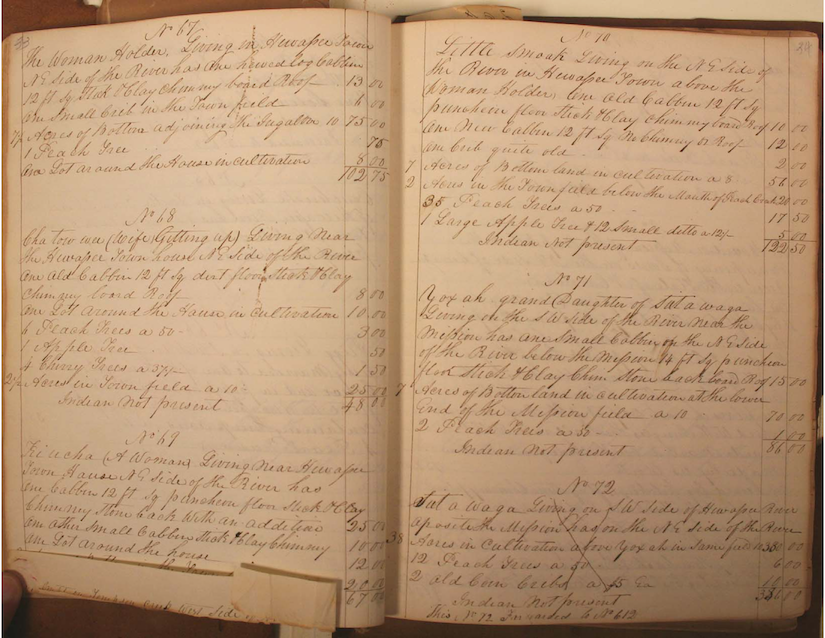 33
No 67
The Woman Holder, Living in Hewassee Town
N E Side of the River has one hewed log Cabbin
12 ft Sq Stick & Clay Chimmy board Roof 13 00
one Small Crib in the Town field 6 00
7½ Acres of Bottom adjoining the Sugaltoe 10 75 00
1 Peach Tree 75
one Lot around the House in cultivation 8 00
102 75
No 68
Cha tow wee (Wife Gitting up) Living Near
the Hewassee Town house N E Side of the River
one Old Cabbin 12 ft Sq dirt floor Stick & Clay
Chimmy board Roof 8 00
one Lot around the House in Cultivation 10 00
6 Peach Trees a 50 3 00
1 Apple Tree 50
4 Cherry Trees a 37½ 1 50
2½ Acres in Town field a 10 25 00
Indian Not present 48 00
No 69
(A Woman) Living Near Hewassee
Town House N E Side of the River has
one Cabbin 12 ft Sq puncheon floor Stick & Clay
Chimmy Stone back With an addition 25 00
one other Small Cabbin Stick & Clay Chimmy 10 00
one Lot around the house 12 00
20 00
67 00
West Side of
34
No 70
Little Smoak Living on the N E Side of
the River in Hewassee Town above the
Woman Holder, one Old Cabbin 12 ft Sq
puncheon floor Stick & Clay Chimmy board Roof 10 00
one New Cabbin 12 ft Sq No Chimmy or Roof 12 00
one Crib quite old 2 00
7 Acres of Bottom land in Cultivation a 8 56 00
2 Acres in the Town field below the Mouth of Creek 20 00
35 Peach Trees a 50 17 50
1 Large Apple Tree & 12 Small ditto a 5 00
Indian Not present 122 50
No 71
Yox ah, grand Daughter of Sut a waga
Living on the S W Side of the River Near the
Mission has one Small Cabbin on the N E Side
of the River below the Mission 14 ft Sq puncheon
floor Stick & Clay Chim Stone back board Roof 15 00
7 Acres of Bottom land in Cultivation at the lower
End of the Mission field a 10 70 00
2 Peach Trees a 50 1 00
Indian Not present 86 00
No 72
Sut a waga Living on S W Side of Hewassee River
oposite the Mission has on the N E Side of the River
38 Acres in Cultivation above Yox ah in Same field 380 00
12 Peach Trees a 50 6 00
2 old Corn Cribs a 5 Ea 10 00
Indian Not present
This No 72 to No 613